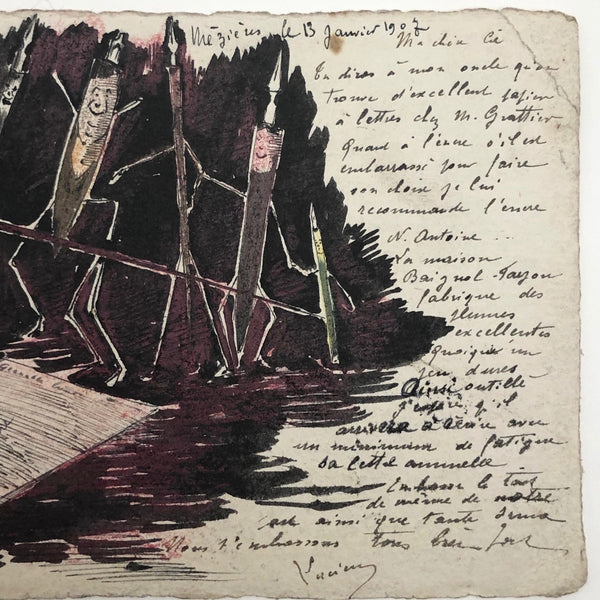 Mézières le 13 Janvier 1907
Ma chère
Tu diras à mon oncle qu'on
trouve d'excellent papier
à lettres chez M. Grattier
Quand à l'encre s'il est
embarrassé pour faire
son choix je lui
recommande l'encre
N. Antoine ..
La maison
Baignol-Farjon
fabrique des
plumes
excellentes
quoiqu'un
peu dures
Ainsi outillé
j'espère qu'il
arrivera à écrire avec
un minimum de fatigue
sa lettre annuelle
Embrasse le tout
de même de notre
part ainsi que tante
Nous t'embrassons tous bien fort
Lucien